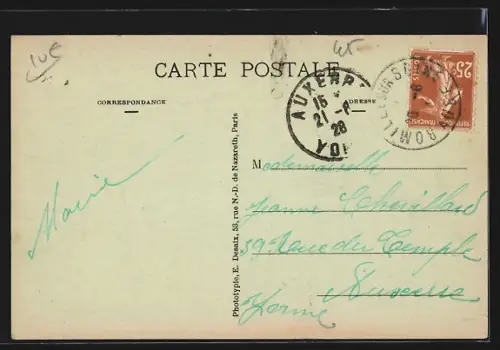 10€
45
CARTE POSTALE
CORRESPONDANCE
ADRESSE
AUXERRE
15
21 -8
28
YONNE
ROMILLY SUR SEINE
25c
Marie
Phototypie, E. Desaix, 53, rue N.-D. de Nazareth, Paris
Mademoiselle
Jeanne Chevillard
59 Rue du Temple
Auxerre
Yonne